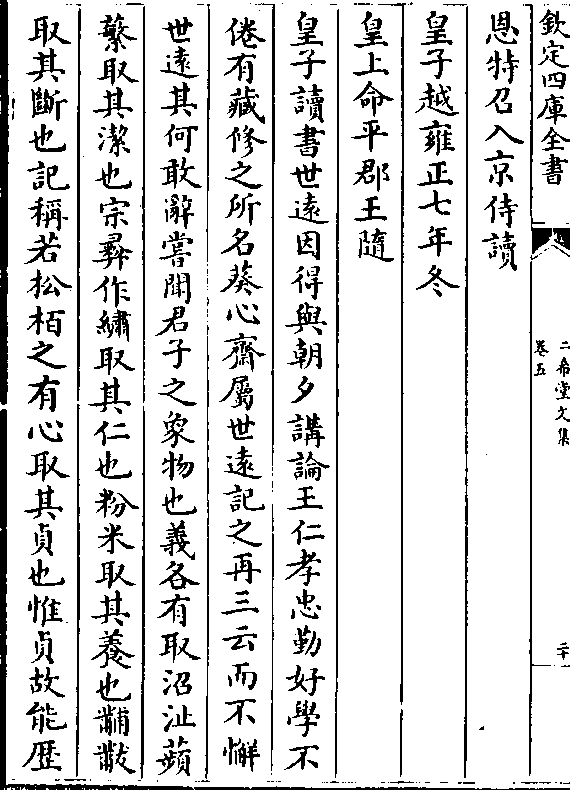 欽定四庫全書
二希堂文集
卷五
二十
恩特召入京侍讀
皇子越雍正七年冬
皇上命平郡王隨
皇子讀書世遠因得與朝夕講論王仁孝忠勤好學不
倦有藏修之所名葵心齋屬世遠記之再三云而不懈
世遠其何敢辭嘗聞君子之象物也義各有取沼沚蘋
蘩取其潔也宗彝作繡取其仁也粉米取其養也黼黻
取其斷也記稱若松栢之有心取其貞也惟貞故能歷